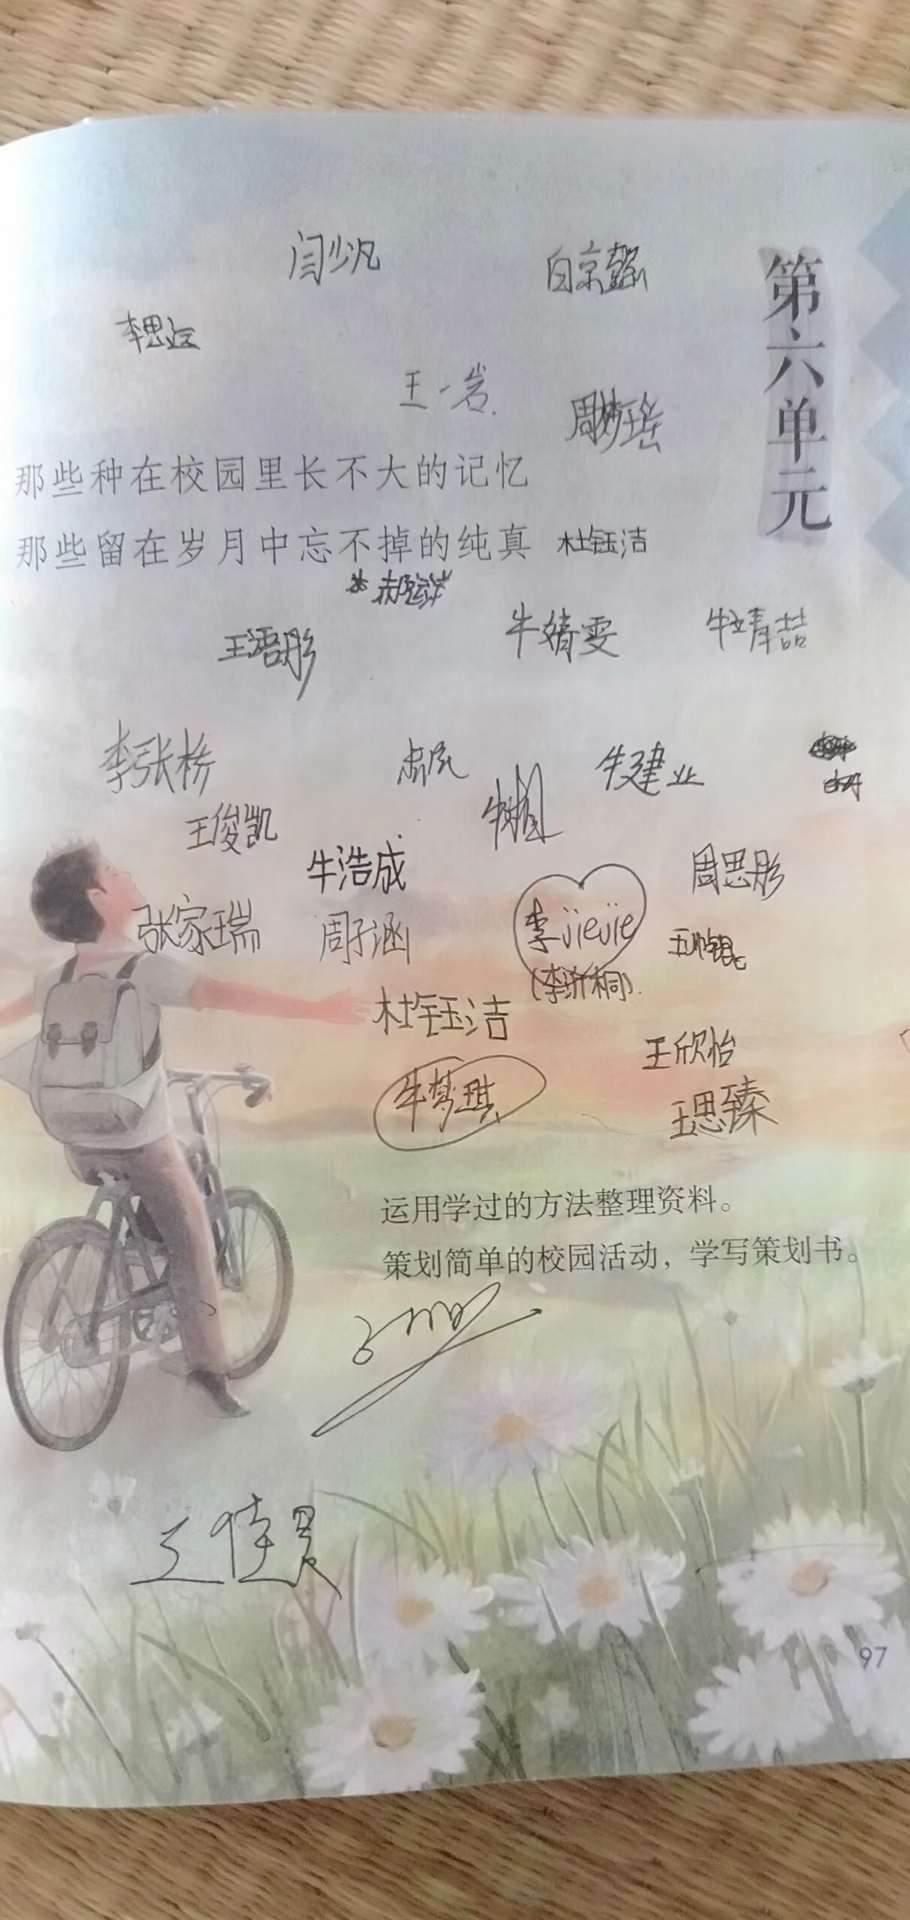 闫少凡
白京鑫
第六单元
李思远
王一岩.
周梦瑶
那些种在校园里长不大的记忆
那些留在岁月中忘不掉的纯真
杜钰洁
王语彤
牛婧雯
牛靖喆
李张桥
牛建业
王俊凯
牛浩成
周思彤
张家瑞
周子涵
李jiejie
(李沂桐).
杜钰洁
王欣怡
牛梦琪
王思臻
运用学过的方法整理资料。
策划简单的校园活动，学写策划书。
97